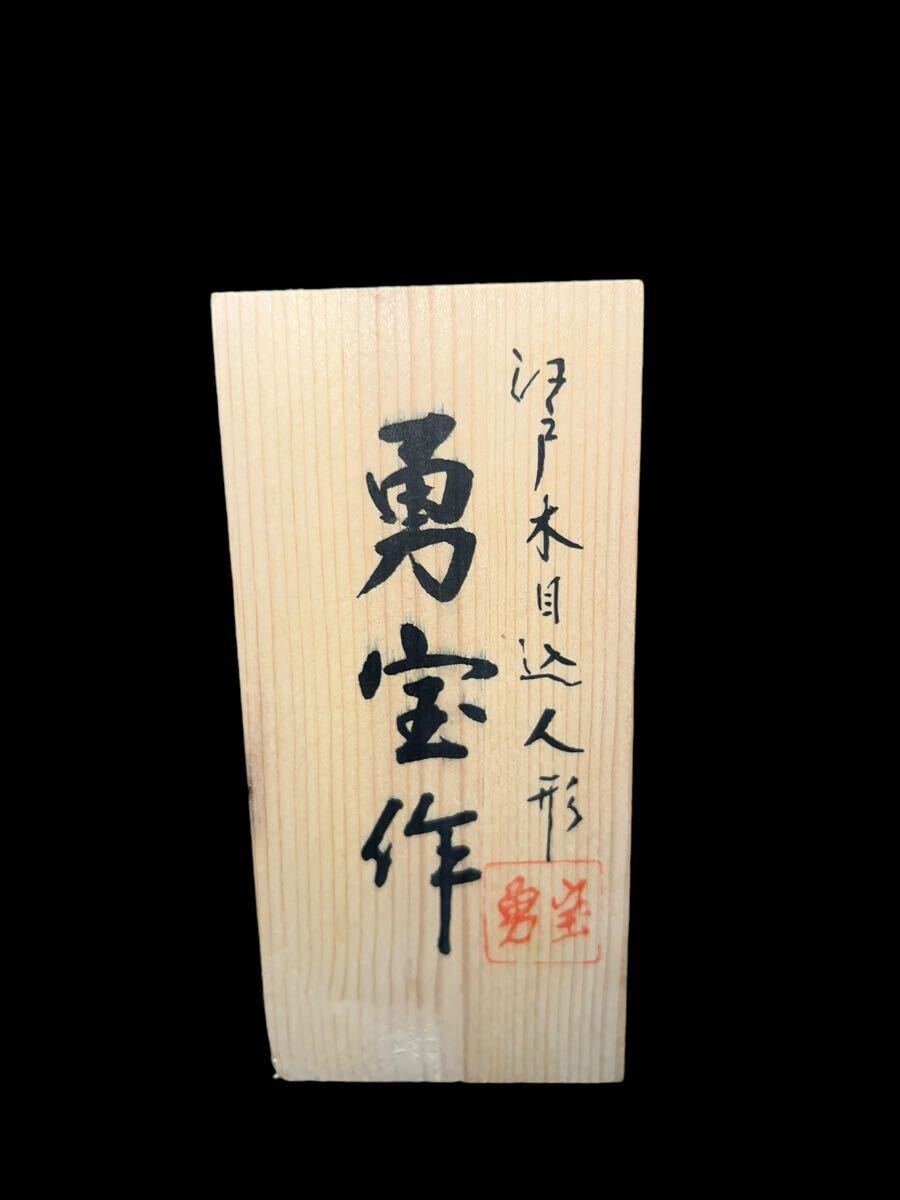 江戸木目込人形
勇宝作
勇宝